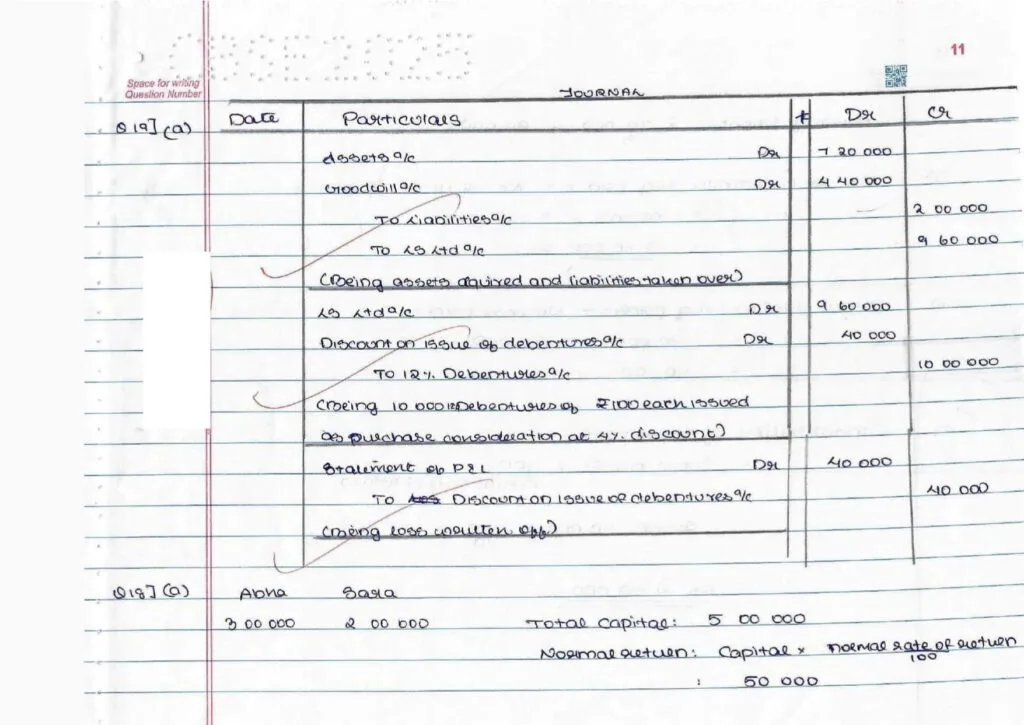 CBSE 2025
11
Space for writing
Question Number
JOURNAL
Q19] (a) Date Particulars Dr Cr
Assets a/c Dr 7 20 000
Goodwill a/c Dr 4 40 000
To Liabilities a/c 2 00 000
To LS Ltd a/c 9 60 000
(Being assets aquired and liabilities taken over)
LS Ltd a/c Dr 9 60 000
Discount on issue of debentures a/c Dr 40 000
To 12% Debentures a/c 10 00 000
(Being 10 000 Debentures of ₹100 each issued
as purchase consideration at 4% discount)
Statement of P&L Dr 40 000
To Discount on issue of debentures a/c 40 000
(Being loss written off)
Q18] (a) Abha Sara
3 00 000 2 00 000 Total Capital: 5 00 000
Normal return: Capital × normal rate of return
100
: 50 000